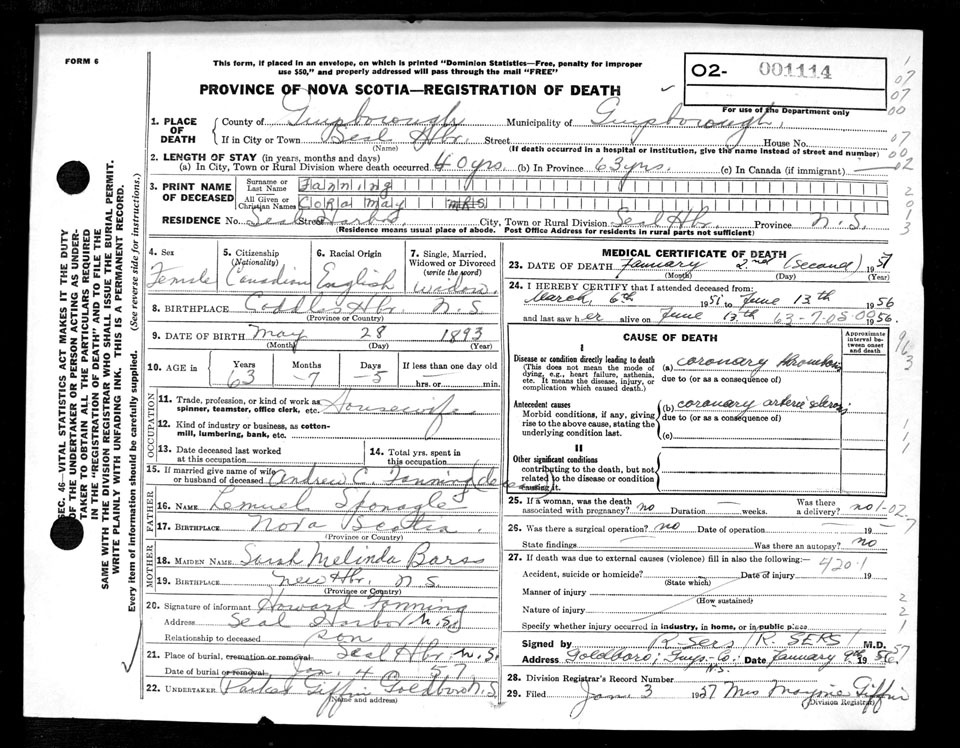 FORM 6
This form, if placed in an envelope, on which is printed "Dominion Statistics—Free, penalty for improper
use $50," and properly addressed will pass through the mail "FREE"
PROVINCE OF NOVA SCOTIA—REGISTRATION OF DEATH
O2- 001114
For use of the Department only
SEC. 46—VITAL STATISTICS ACT MAKES IT THE DUTY
OF THE UNDERTAKER OR PERSON ACTING AS UNDER-
TAKER TO OBTAIN ALL THE PARTICULARS REQUIRED
IN THE "REGISTRATION OF DEATH" AND TO FILE THE
SAME WITH THE DIVISION REGISTRAR WHO SHALL ISSUE THE BURIAL PERMIT.
WRITE PLAINLY WITH UNFADING INK. THIS IS A PERMANENT RECORD.
Every item of information should be carefully supplied. (See reverse side for instructions.)
1. PLACE OF DEATH County of Guysborough Municipality of Guysborough
If in City or Town Seal Hbr. Street House No.
(Name) (If death occurred in a hospital or institution, give the name instead of street and number)
2. LENGTH OF STAY (in years, months and days)
(a) In City, Town or Rural Division where death occurred 40 yrs. (b) In Province 63 yrs. (c) In Canada (if immigrant)
3. PRINT NAME OF DECEASED Surname or Last Name Fanning
All Given or Christian Names Cora May MRS
RESIDENCE No. Street Seal Harbor City, Town or Rural Division Seal Hbr. Province N.S.
(Residence means usual place of abode. Post Office Address for residents in rural parts not sufficient)
4. Sex Female
5. Citizenship (Nationality) Canadian
6. Racial Origin English
7. Single, Married, Widowed or Divorced (write the word) Widow
8. BIRTHPLACE Coddles Hbr. N.S.
(Province or Country)
9. DATE OF BIRTH May 28 1893
(Month) (Day) (Year)
10. AGE Years 63 Months 7 Days 5 If less than one day
hrs. or min.
OCCUPATION
11. Trade, profession, or kind of work as spinner, teamster, office clerk, etc. Housewife
12. Kind of industry or business, as cotton-mill, lumbering, bank, etc.
13. Date deceased last worked at this occupation
14. Total yrs. spent in this occupation
15. If married give name of wife or husband of deceased Andrew C. Fanning (deceased)
FATHER
16. NAME Lemuel Sponagle
17. BIRTHPLACE Nova Scotia
(Province or Country)
MOTHER
18. MAIDEN NAME Sarah Melinda Barss
19. BIRTHPLACE New Hbr. N.S.
(Province or Country)
20. Signature of informant Howard Fanning
Address Seal Harbor N.S.
Relationship to deceased son
21. Place of burial, cremation or removal Seal Hbr. N.S.
Date of burial or removal Jan. 4 57
22. UNDERTAKER Parker Giffin Goldboro N.S.
(Name and address)
MEDICAL CERTIFICATE OF DEATH
23. DATE OF DEATH January 2nd (second) 1957
(Month) (Day) (Year)
24. I HEREBY CERTIFY that I attended deceased from:
March, 6th 1951 to June 13th 1956
and last saw her alive on June 13th 1956.
63-7-05-00
CAUSE OF DEATH
Approximate interval between onset and death
I
Disease or condition directly leading to death
(This does not mean the mode of dying, e.g., heart failure, asthenia, etc. It means the disease, injury, or complication which caused death.)
(a) coronary thrombosis
due to (or as a consequence of)
Antecedent causes
Morbid conditions, if any, giving rise to the above cause, stating the underlying condition last.
(b) coronary arterio sclerosis
due to (or as a consequence of)
(c)
II
Other significant conditions
contributing to the death, but not related to the disease or condition causing it.
25. If a woman, was the death associated with pregnancy? no Duration weeks. Was there a delivery? no
26. Was there a surgical operation? no Date of operation 19
State findings Was there an autopsy? no
27. If death was due to external causes (violence) fill in also the following:
420.1
Accident, suicide or homicide? Date of injury 19
(State which)
Manner of injury
(How sustained)
Nature of injury
Specify whether injury occurred in industry, in home, or in public place
Signed by R. Sers /R. SERS/ M.D.
Address Goldboro, Guys. Co. N.S. Date January 9th 1956
28. Division Registrar's Record Number
29. Filed Jan. 3 1957 Mrs Giffin
(Division Registrar)